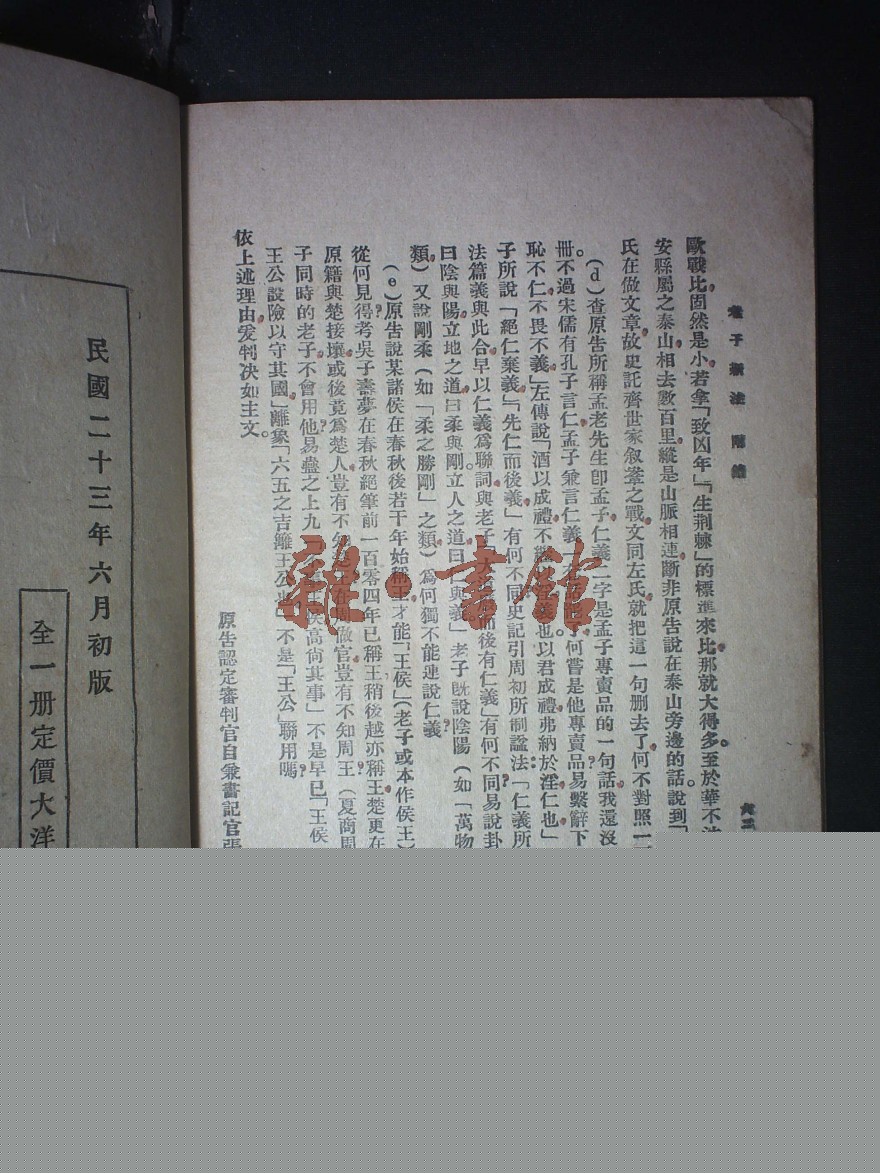 老子新注 附錄
歐戰比固然是小若拿「致凶年」「生荆棘」的標準來比那就大得多。至於華不
安縣屬之泰山相去數百里縱是山脈相連斷非原告說在泰山旁邊的話。說到「
氏在做文章故史記齊世家叙鞌之戰文同左氏就把這一句删去了何不對照一
(d)查原告所稱孟老先生卽孟子仁義二字是孟子專賣品的一句話我還沒
冊不過宋儒有孔子言仁孟子兼言仁義
何嘗是他專賣品易繫辭下
恥不仁不畏不義」左傳說「酒以成禮不
也以君成禮弗納於淫仁也」
子所說「絕仁棄義」「先仁而後義」有何不同史記引周初所制諡法:「仁義所
法篇義與此合早以仁義爲聯詞與老子「大
而後有仁義」有何不同易說卦
曰陰與陽立地之道曰柔與剛立人之道曰仁與義」老子既說陰陽(如「萬物
類)又說剛柔(如「柔之勝剛」之類)爲何獨不能連說仁義
(e)原告說某諸侯在春秋後若干年始稱王才能「王侯」(老子或本作侯王)
從何見得考吳子壽夢在春秋絕筆前一百零四年已稱王稍後越亦稱王楚更在
原籍與楚接壤或後竟爲楚人豈有不
做官豈有不知周王(夏商周
子同時的老子不會用他易蠱之上九「
王侯高尚其事」不是早已「王侯
王公設險以守其國」離象「六五之吉離王公也」不是「王公」聯用嗎
依上述理由爰判决如主文。
原告認定審判官自兼書記官張
民國二十三年六月初版
全一册定價大洋
雜·書館